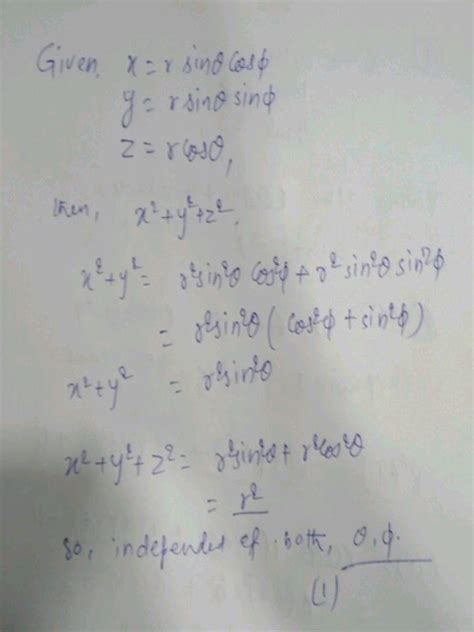 Given, x = r sinθ cosϕ
y = r sinθ sinϕ
z = r cosθ,
then, x² + y² + z².
x² + y² = r² sin²θ cos²ϕ + r² sin²θ sin²ϕ
= r² sin²θ ( cos²ϕ + sin²ϕ )
x² + y² = r² sin²θ
x² + y² + z² = r² sin²θ + r² cos²θ
= r²
so, independed of both, θ, ϕ.
(1)